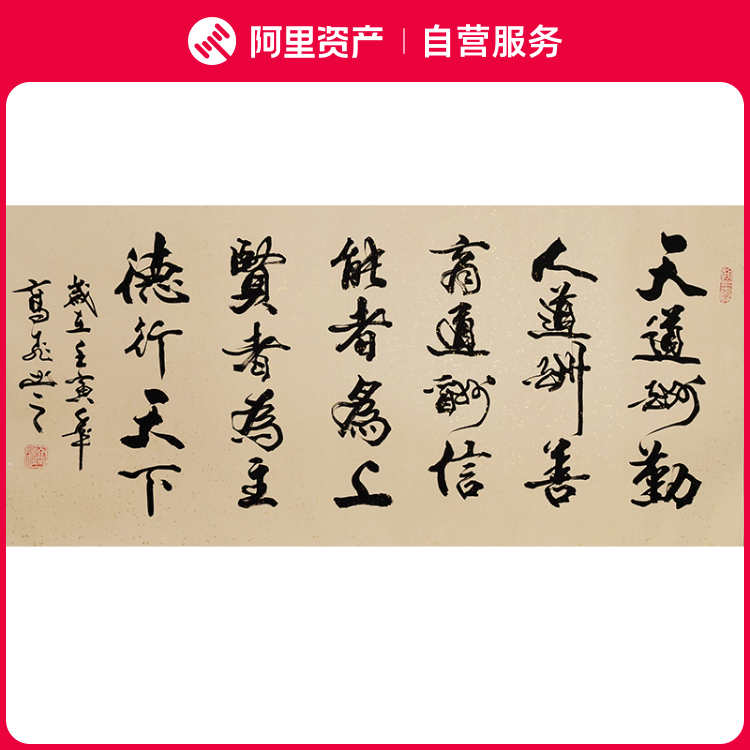 阿里资产 | 自营服务
天道酬勤
人道酬善
商道酬信
能者為上
賢者為主
德行天下
歲在壬寅年
高飛書之